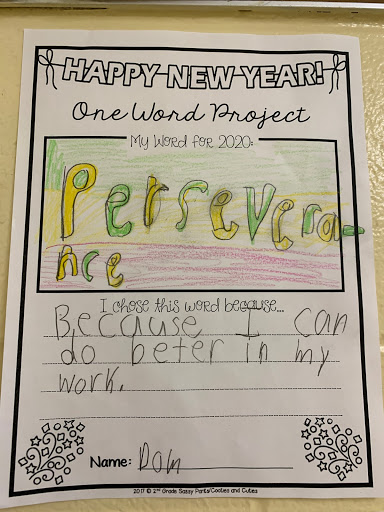 HAPPY NEW YEAR!
One Word Project
My Word for 2020:
Persevera-
nce
I chose this word because...
Because I can
do beter in my
work.
Name: Dom
2017 © 2nd Grade Sassy Pants/Cooties and Cuties